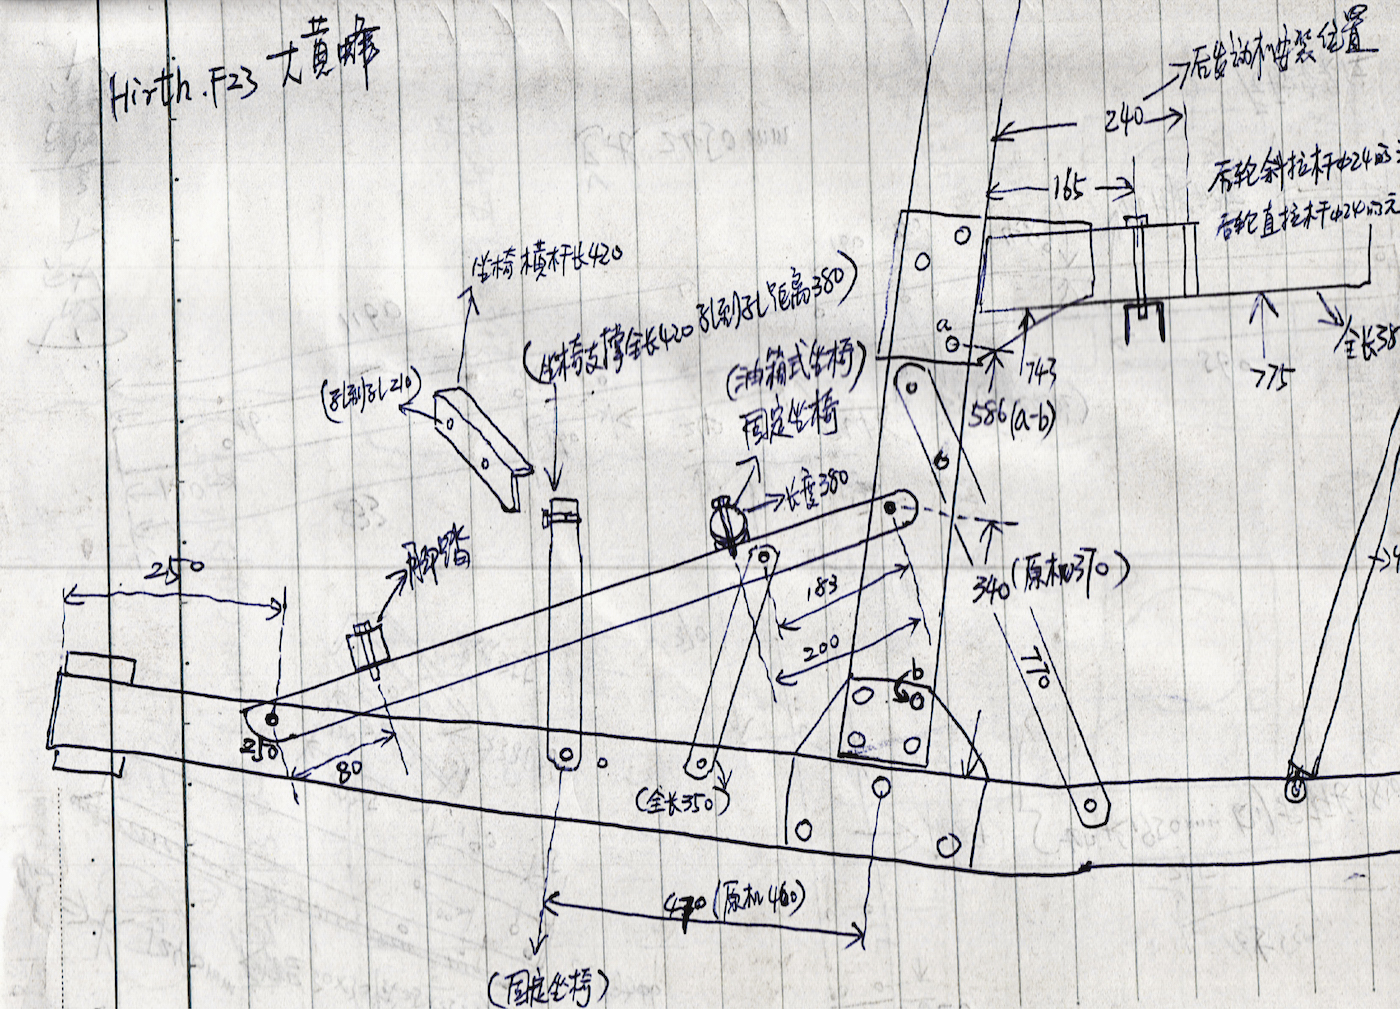 Hirth.F23 大黄蜂
后发动机安装位置
240
165
后轮斜拉杆Φ24
后轮直拉杆Φ24
坐椅横杆长420
(坐椅支撑全长420 孔到孔距离380)
(孔到孔210)
(油箱式坐椅)
固定坐椅
长度380
a
743
586(a-b)
775
全长38
250
脚踏
183
200
340(原机370)
770
b
250
80
(全长350)
470(原机460)
(固定坐椅)